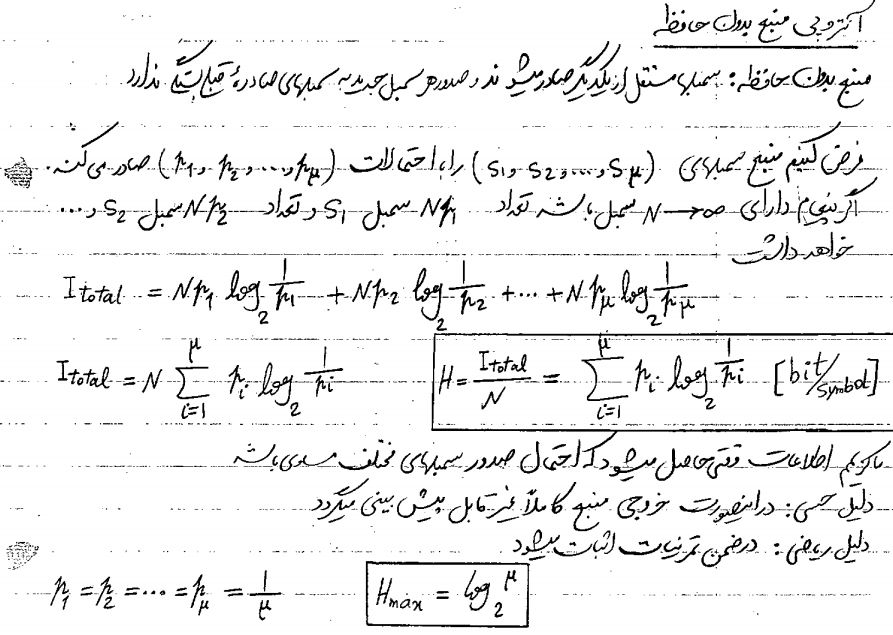 آنتروپی منبع بدون حافظه
منبع بدون حافظه: سمبلها مستقل از یکدیگر صادر میشوند و صدور هر سمبل جدید به سمبلهای صادره قبلی بستگی ندارد
فرض کنیم منبع سمبلهای (s1, s2, ..., sμ) را با احتمالات (p1, p2, ..., pμ) صادر می‌کند.
اگر پیغام دارای N→∞ سمبل باشد تعداد Np1 سمبل s1 و تعداد Np2 سمبل s2 و ...
خواهد داشت
I total = Np1 log2 1/p1 + Np2 log2 1/p2 + ... + Npμ log2 1/pμ
I total = N Σ(i=1..μ) pi log2 1/pi    H = I total / N = Σ(i=1..μ) pi log2 1/pi [bit/symbol]
ماکزیمم اطلاعات وقتی حاصل میشود که احتمال صدور سمبلهای مختلف مساوی باشد
دلیل حسی: در اینصورت خروجی منبع کاملاً غیر قابل پیش بینی میگردد
دلیل ریاضی: در ضمن تمرینات اثبات میشود
p1 = p2 = ... = pμ = 1/μ    Hmax = log2 μ